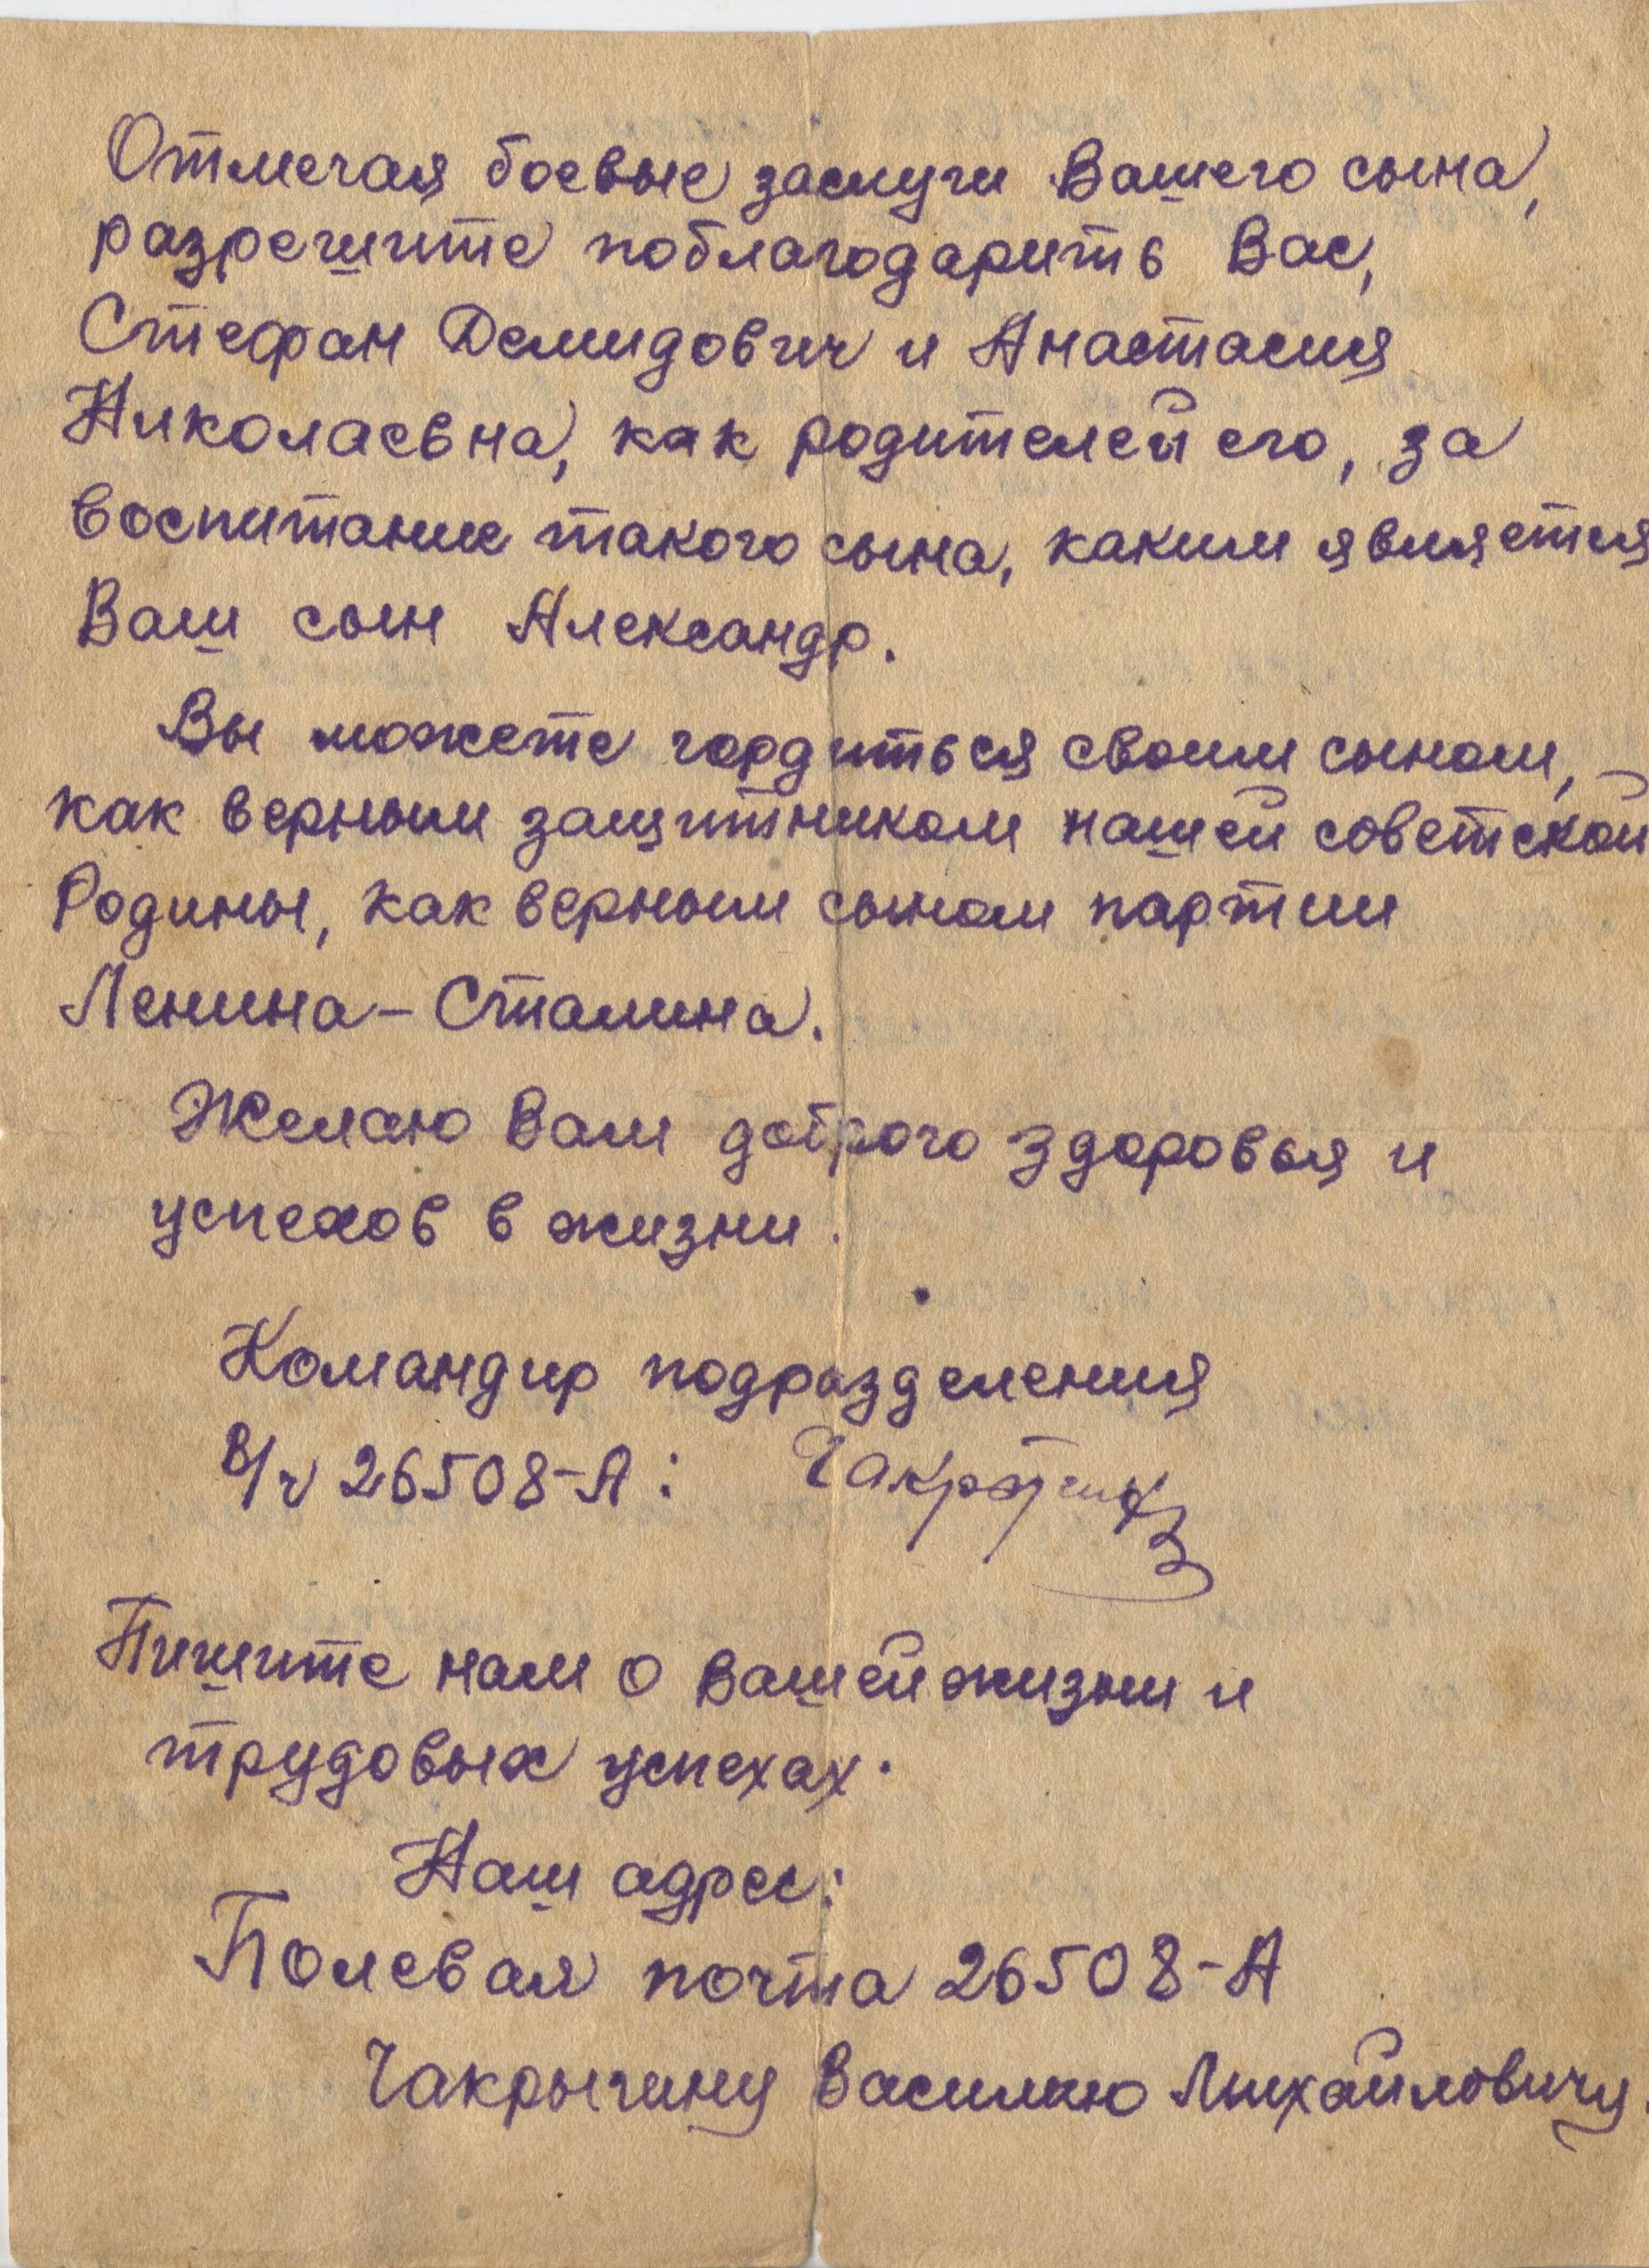 Отмечая боевые заслуги Вашего сына,
разрешите поблагодарить Вас,
Стефан Демидович и Анастасия
Николаевна, как родителей его, за
воспитание такого сына, каким является
Ваш сын Александр.
Вы можете гордиться своим сыном,
как верным защитником нашей советской
Родины, как верным сыном партии
Ленина – Сталина.
Желаю Вам доброго здоровья и
успехов в жизни.
Командир подразделения
В/ч 26508-А: Чакрыгин
Пишите нам о Вашей жизни и
трудовых успехах.
Наш адрес:
Полевая почта 26508-А
Чакрыгину Василию Михайловичу.